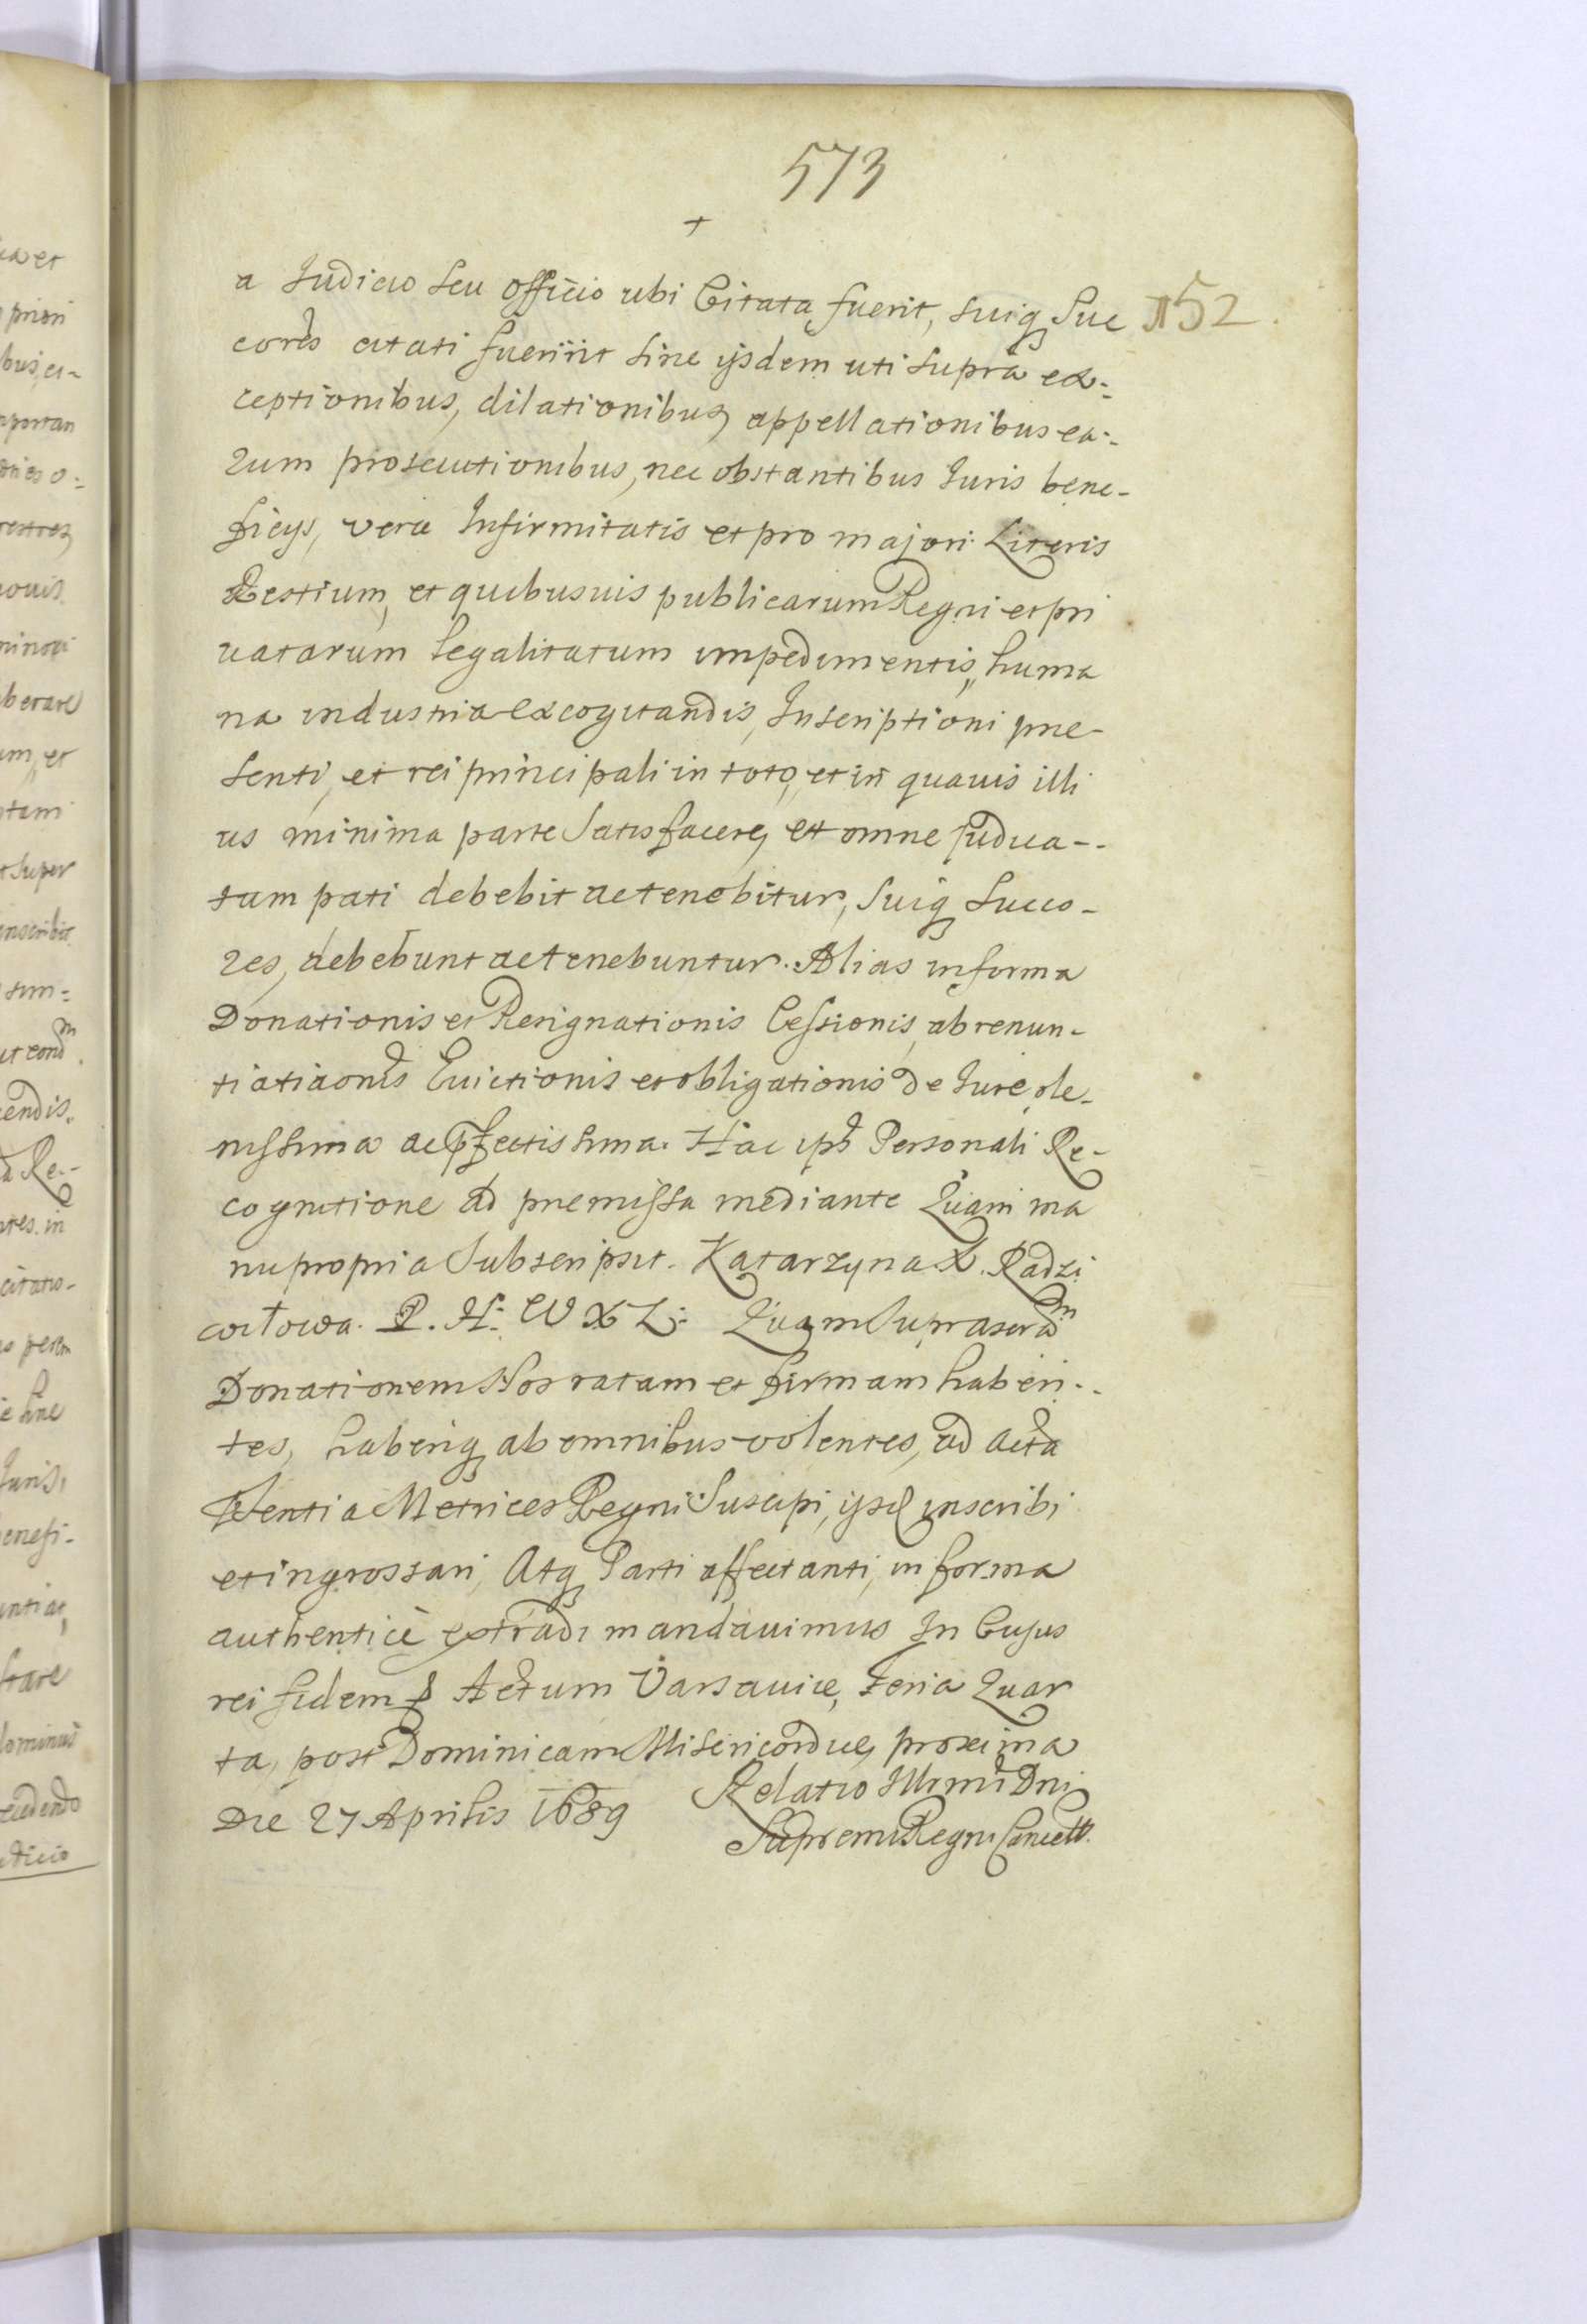 573
+
a Iudicio seu officio ubi Citata fuerit, suiq Suc 152.
cores citati fuerint sine ijsdem uti supra ex-
ceptionibus, dilationibus, appellationibus ea-
rum prosecutionibus, nec obstantibus Iuris bene-
ficys, veræ Infirmitatis et pro majori Literis
Testium, et quibusuis publicarum Regni et pri
uatarum legalitatum impedimentis, huma
na industria excogitandis, Inscriptioni præ-
senti, et rei principali in toto, et in quauis illi
us minima parte Satisfacere, et omne Iudica--
tum pati debebit ac tenebitur, Suiq Succo-
res, debebunt ac tenebuntur. Alias in forma
Donationis et Resignationis Cessionis, abrenun-
tiatiaonis Euictionis et obligationis de Iure ple-
nissima ac pfectissima. Hac ips Personali Re-
cognitione ad præmissa mediante Quam ma
nu propria Subscripsit. Katarzyna X. Radzi
wiłłowa. P. K: W X L: Quam Suprascrm
Donationem Nos ratam et firmam haben--
tes, haberiq ab omnibus volentes, ad Acta
Metrices Regni Suscipi, ijsq inscribi
et ingrossari, Atq Parti affectanti, in forma
authenticè extradi mandauimus In Cujus
rei fidem Actum Varsauiæ, Feria Quar
ta, post Dominicam Misericordiæ, proxima
Die 27 Aprilis 1689 Relatio Illrmi Dni
Supremi Regni Cancell.